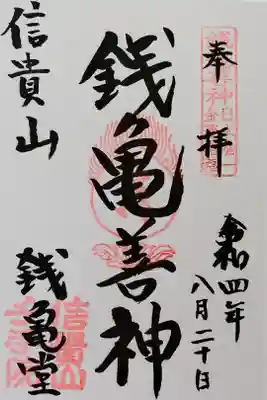 奉拝
令和四年
八月二十日
銭亀善神
信貴山
銭亀堂